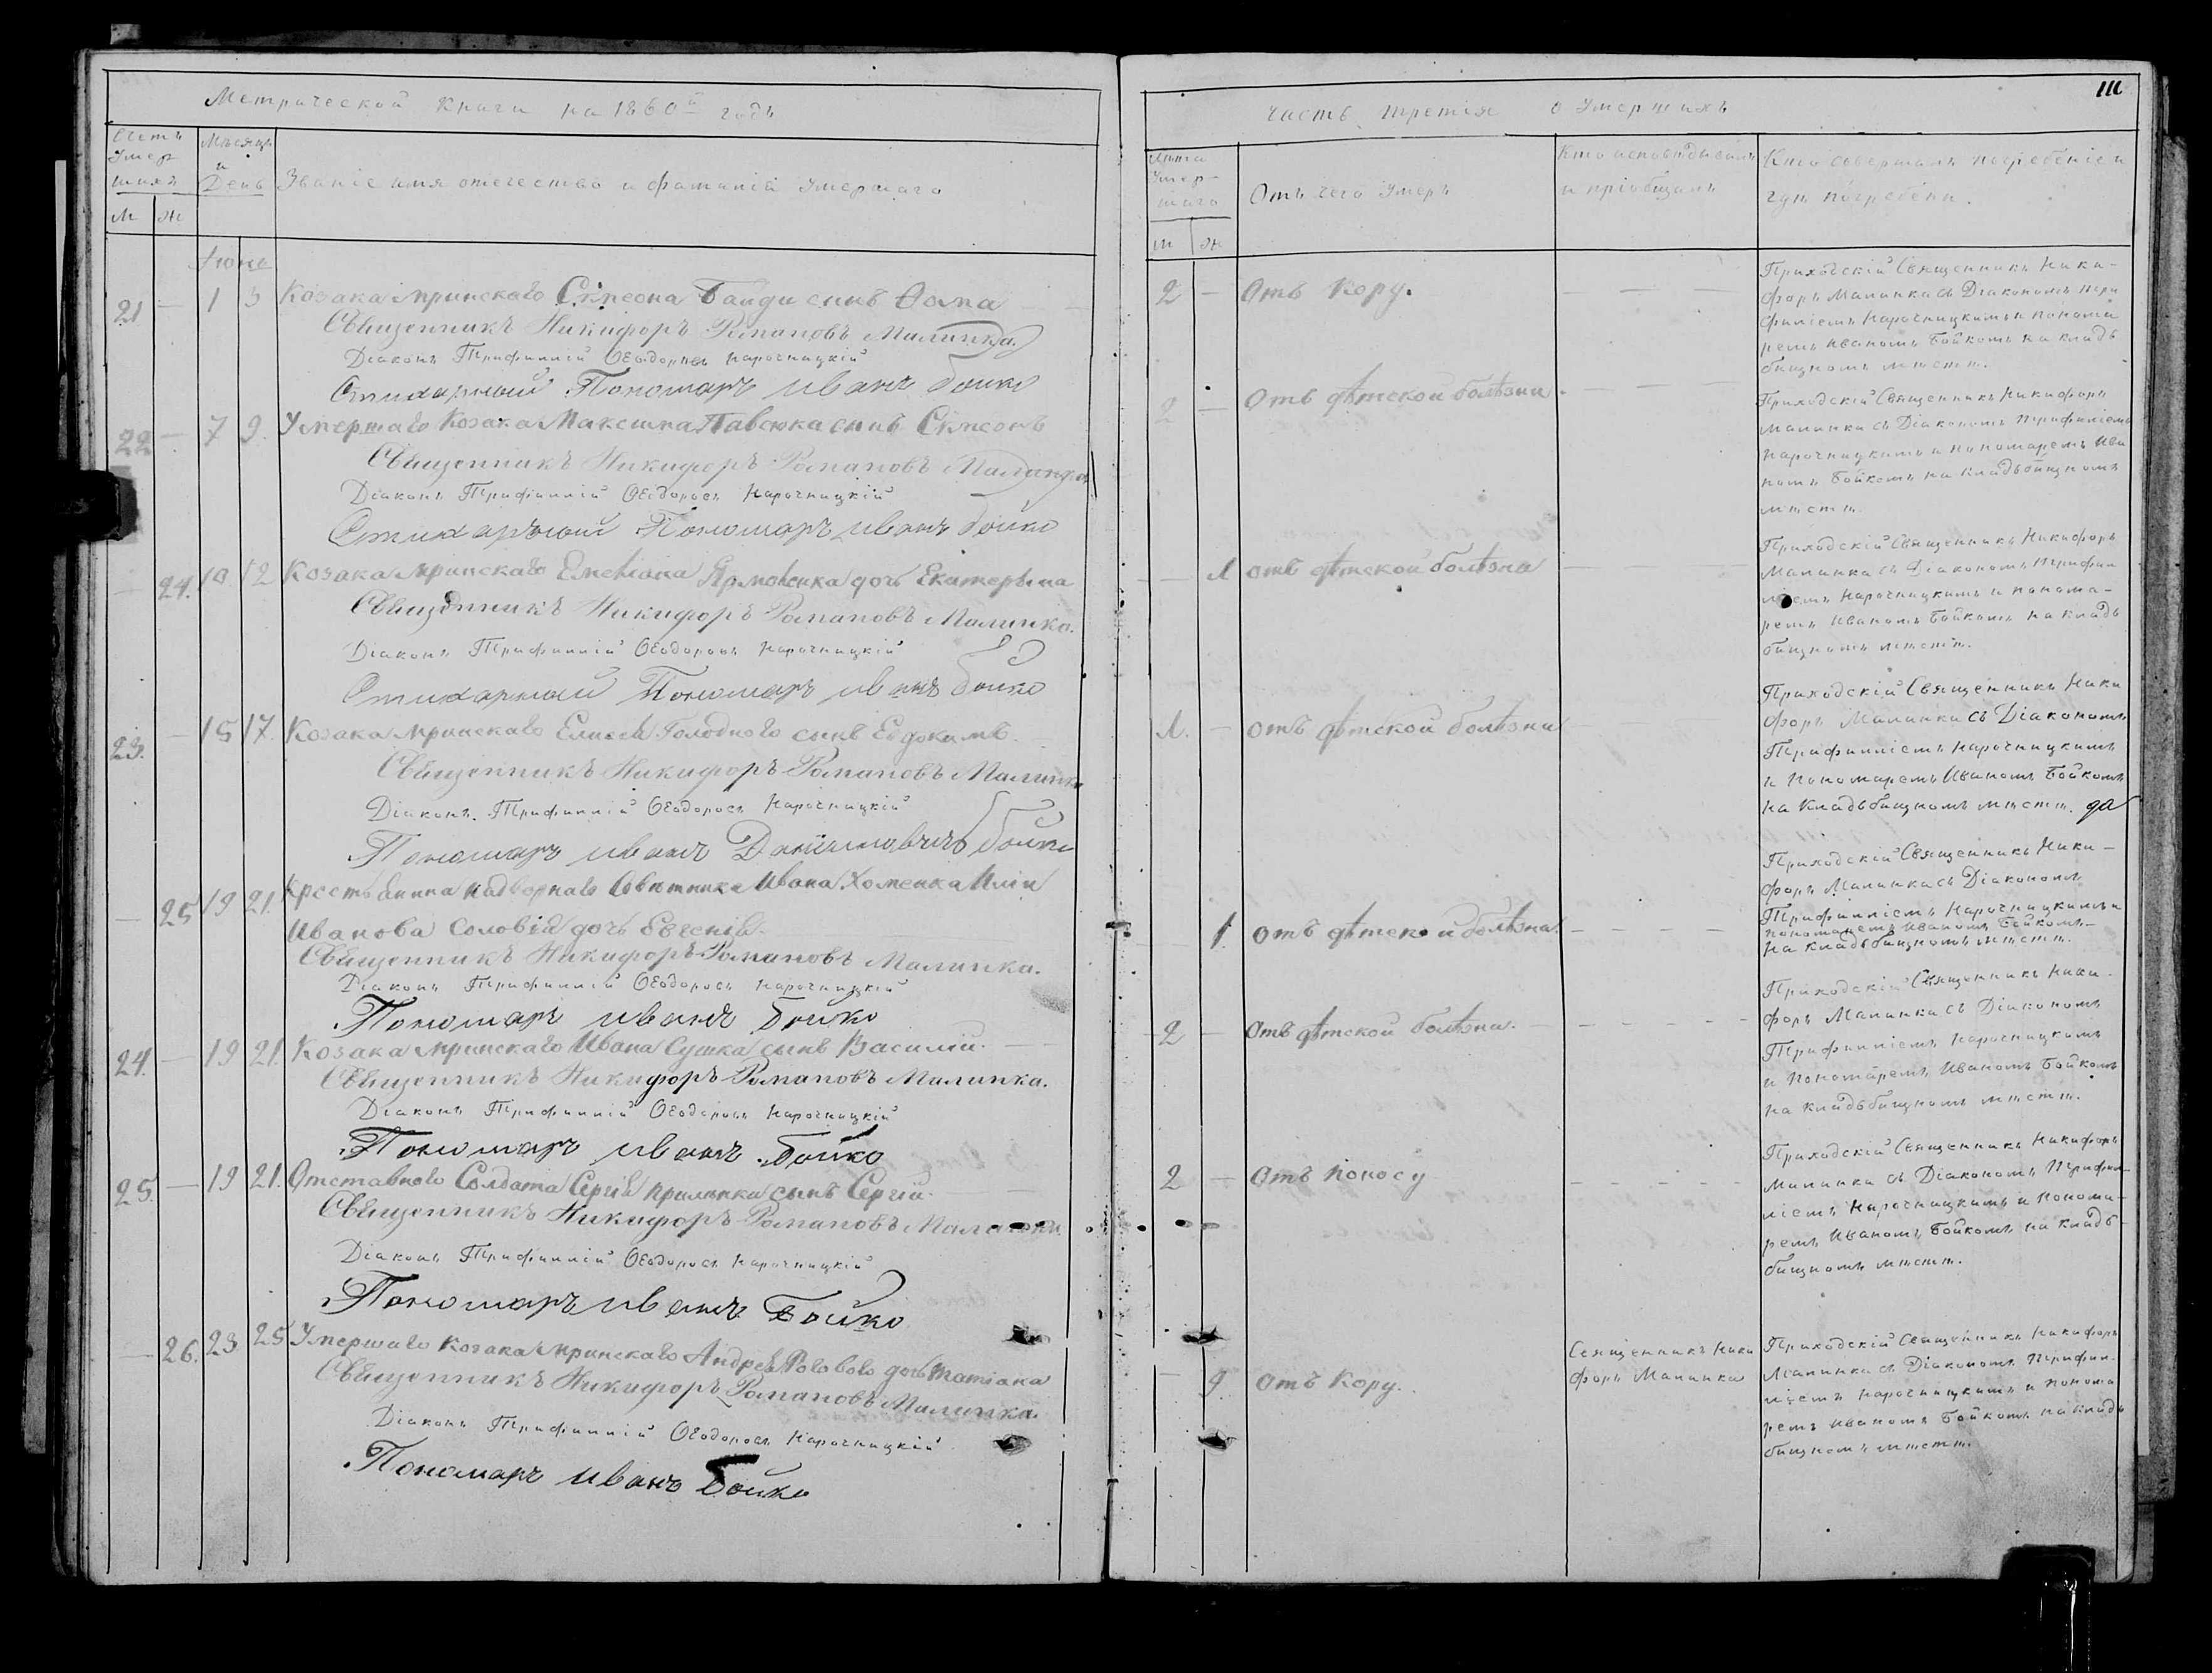 Метрической Книги на 1860й годъ
Счетъ Умершихъ
Мѣсяцъ и День
Званіе имя отечество и фамилій Умершаго
м ж
Іюнь
21 — 1 3 Козака Мринскаго Сѵмеона Байди синъ Ѳома
Священникъ Никифоръ Романовъ Малинка.
Діаконъ Трифиллій Ѳеодоровъ Нарочницкій
Стихарный Пономаръ иванъ бойко
22 — 7 9. Умершаго Козака Максима Павсюка синъ Сѵмеонъ
Священникъ Никифоръ Романовъ Малинка
Діаконъ Трифиллій Ѳеодоровъ Нарочницкій
Стихарный Пономаръ иванъ бойко
— 24. 10 12 Козака Мринскаго Емеліана Ярмоленка дочь Екатерина
Священникъ Никифоръ Романовъ Малинка.
Діаконъ Трифиллій Ѳеодоровъ Нарочницкій
Стихарный Пономаръ иванъ бойко
23. — 15 17. Козака Мринскаго Елисея Голодного сынъ Евдокимъ.
Священникъ Никифоръ Романовъ Малинка
Діаконъ Трифиллій Ѳеодоровъ Нарочницкій
Пономаръ иванъ бойко
— 25 19 21. Крестьянина надворнаго Совѣтника Ивана Хоменка Иліи
Иванова Соловія дочь Евгенія
Священникъ Никифоръ Романовъ Малинка.
Діаконъ Трифиллій Ѳеодоровъ Нарочницкій
Пономаръ иванъ бойко
24. — 19 21. Козака Мринскаго Ивана Сушка сынъ Василій.
Священникъ Никифоръ Романовъ Малинка.
Діаконъ Трифиллій Ѳеодоровъ Нарочницкій
Пономаръ иванъ бойко
25. — 19 21. Отставного Солдата Сергія сынъ Сергій.
Священникъ Никифоръ Романовъ Малинка.
Діаконъ Трифиллій Ѳеодоровъ Нарочницкій
Пономаръ иванъ Бойко
— 26. 23 25 Умершаго Козака Мринскаго Андрея Рогового дочь Татіана
Священникъ Никифоръ Романовъ Малинка
Діаконъ Трифиллій Ѳеодоровъ Нарочницкій
Пономаръ иванъ Бойко
111
часть третія о Умершихъ
Лѣта Умершаго
Отъ чего Умеръ
Кто исповѣдывалъ
и пріобщалъ
Кто совершалъ погребеніе и
гдѣ погребены.
м ж
2 — Отъ кору. — — —
Приходскій Священникъ Ники-
форъ Малинка съ Діакономъ Три
филіемъ Нарочницкимъ и понома
ремъ Иваномъ Бойкомъ на кладъ
бищномъ мѣстѣ.
2 — Отъ дѣтской болѣзни. — — —
Приходскій Священникъ Никифоръ
Малинка съ Діакономъ Трифиліемъ
Нарочницкимъ и пономаремъ Ива
номъ Бойкомъ на кладъбищномъ
мѣстѣ.
— 1 отъ дѣтской болѣзна
Приходскій Священникъ Никифоръ
Малинка съ Діакономъ Трифил
ліемъ Нарочницкимъ и понома-
ремъ Иваномъ Бойкомъ на кладъ
бищномъ мѣстѣ.
1. — отъ дѣтской болѣзни
Приходскій Священникъ Ники
форъ Малинка съ Діакономъ
Трифилліемъ Нарочницкимъ
и Пономаремъ Иваномъ Бойкомъ
на кладъбищномъ мѣстѣ.
1. отъ дѣтской болѣзна. — — — —
Приходскій Священникъ Ники-
форъ Малинка съ Діакономъ
Трифилліемъ Нарочницкимъ и
пономаремъ Иваномъ Бойкомъ
на кладъбищномъ мѣстѣ.
2 — Отъ дѣтской болѣзни. — — — — —
Приходскій Священникъ Ники-
форъ Малинка съ Діакономъ
Трифилліемъ Нарочницкимъ
и Пономаремъ Иваномъ Бойкомъ
на кладъбищномъ мѣстѣ.
2 — Отъ поносу — — — — —
Приходскій Священникъ Никифоръ
Малинка съ Діакономъ Трифил-
ліемъ Нарочницкимъ и Понома-
ремъ Иваномъ Бойкомъ на кладъ-
бищномъ мѣстѣ.
— 9. Отъ Кору.
Священникъ Ники
форъ Малинка
Приходскій Священникъ Никифоръ
Малинка съ Діакономъ Трифил-
ліемъ Нарочницкимъ и понома
ремъ Иваномъ Бойкомъ на кладъ
бищномъ мѣстѣ.